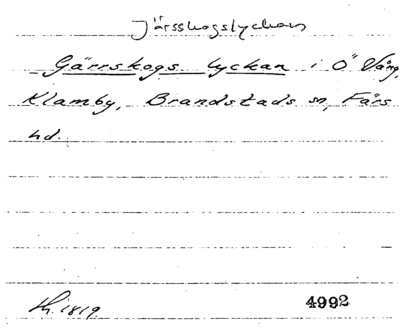 Järsskogslyckan
Gärrskogs lyckan i Ö Vång,
Klamby, Brandstads sn, Färs
hd.
Sk. 1819. 4992